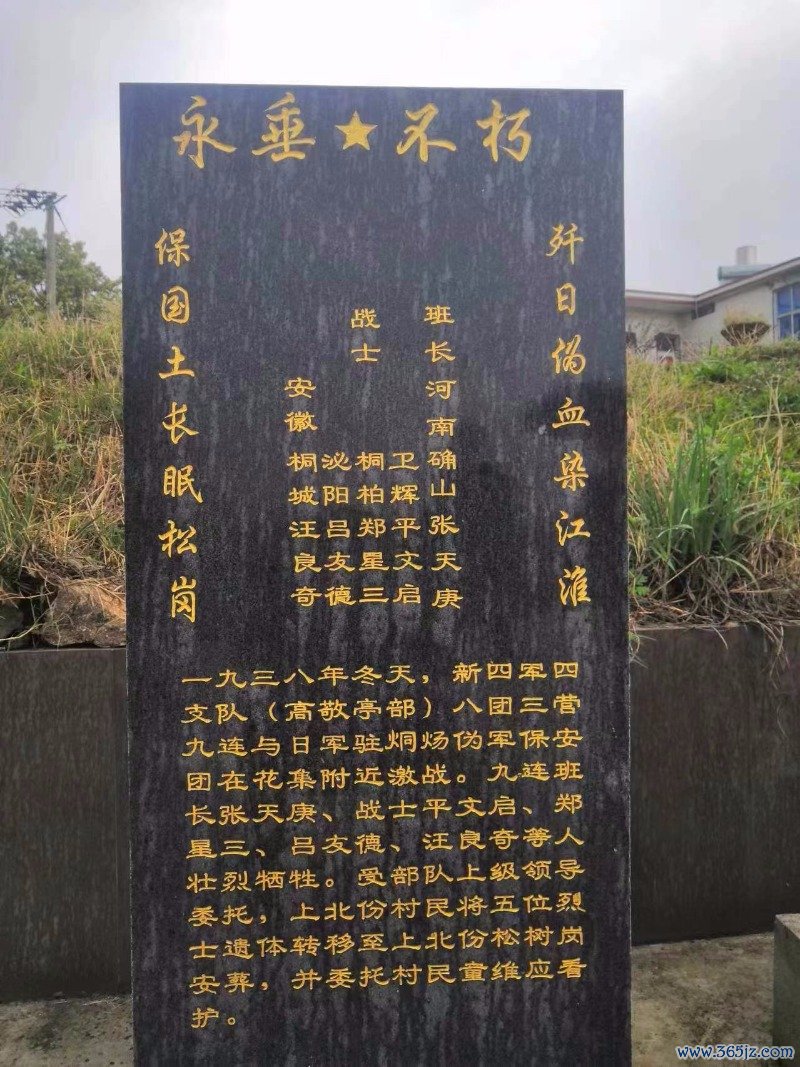 永垂★不朽
歼日伪血染江淮
班长河南确山张天庚
卫辉平文启
战士
桐柏郑星三
泌阳吕友德
安徽桐城汪良奇
保国土长眠松岗
一九三八年冬天，新四军四
支队（高敬亭部）八团三营
九连与日军驻炯炀伪军保安
团在花集附近激战。九连班
长张天庚、战士平文启、郑
星三、吕友德、汪良奇等人
壮烈牺牲。受部队上级领导
委托，上北份村民将五位烈
士遗体转移至上北份松树岗
安葬，并委托村民童维应看
护。
www.365jz.com